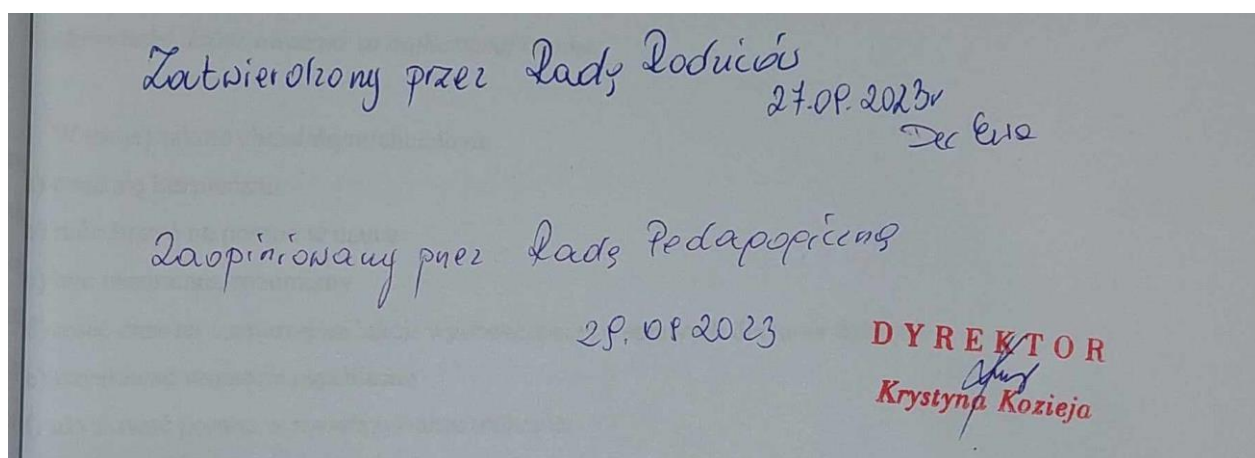 Zatwierdzony przez Radę Rodziców
27.09.2023r
Dec Ewa
Zaopiniowany przez Radę Pedagogiczną
29.09.2023
DYREKTOR
Krystyna Kozieja